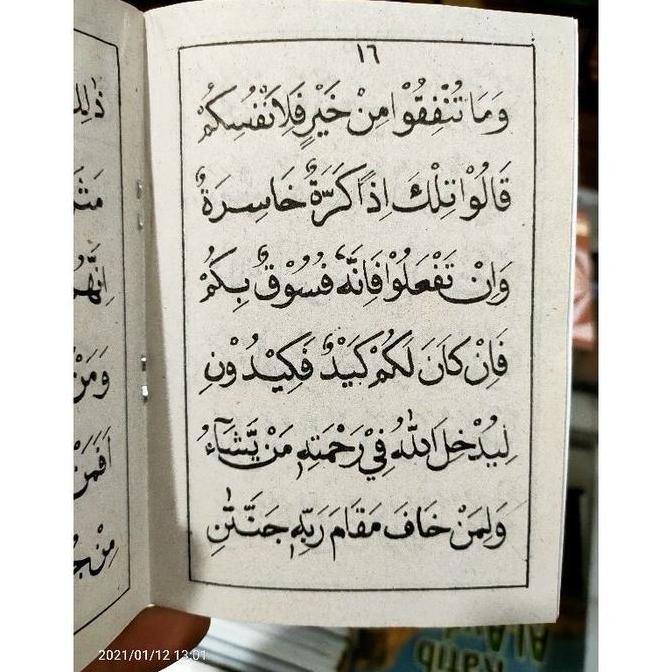 ١٦
وَمَا تُنْفِقُوْا مِنْ خَيْرٍ فَلِاَنْفُسِكُمْ
قَالُوْا تِلْكَ اِذًا كَرَّةٌ خَاسِرَةٌ
وَاِنْ تَفْعَلُوْا فَاِنَّهٗ فُسُوْقٌ بِكُمْ
فَاِنْ كَانَ لَكُمْ كَيْدٌ فَكِيْدُوْنِ
لِيُدْخِلَ اللّٰهُ فِيْ رَحْمَتِهٖ مَنْ يَّشَآءُ
وَلِمَنْ خَافَ مَقَامَ رَبِّهٖ جَنَّتٰنِ
ذٰلِكَ
اِنَّهُ
وَمَنْ
اَفَمَنْ
2021/01/12 13:01